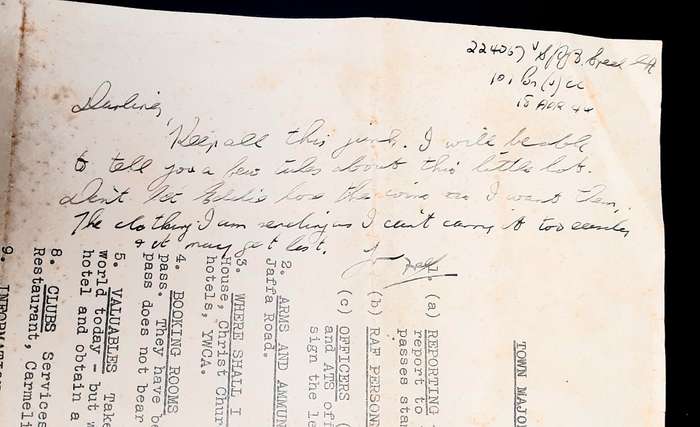 15 APR 44
Darling,
Keep all this junk. I will be able
to tell you a few tales about this little lot.
Don't let Eddie the coins as I want them.
The clothing I am sending as I can't carry it too easily
& it may get lost.
TOWN MAJO
1. (a) REPORTING
report to
passes sta
(b) RAF PERSON
(c) OFFICERS (
and ATS off
sign the le
2. ARMS AND AMMUN
Jaffa Road.
3. WHERE SHALL I
House, Christ Chur
hotels, YWCA.
4. BOOKING ROOMS
pass. They have b
pass does not bear
5. VALUABLES Take
world today - but w
hotel and obtain a
8. CLUBS Services
Restaurant, Carmeli
9. INFORMATION